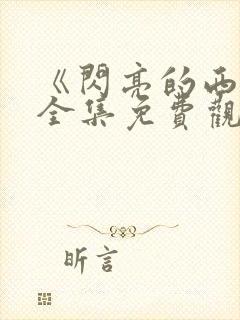 《閃亮的西
全集免費觀
昕言